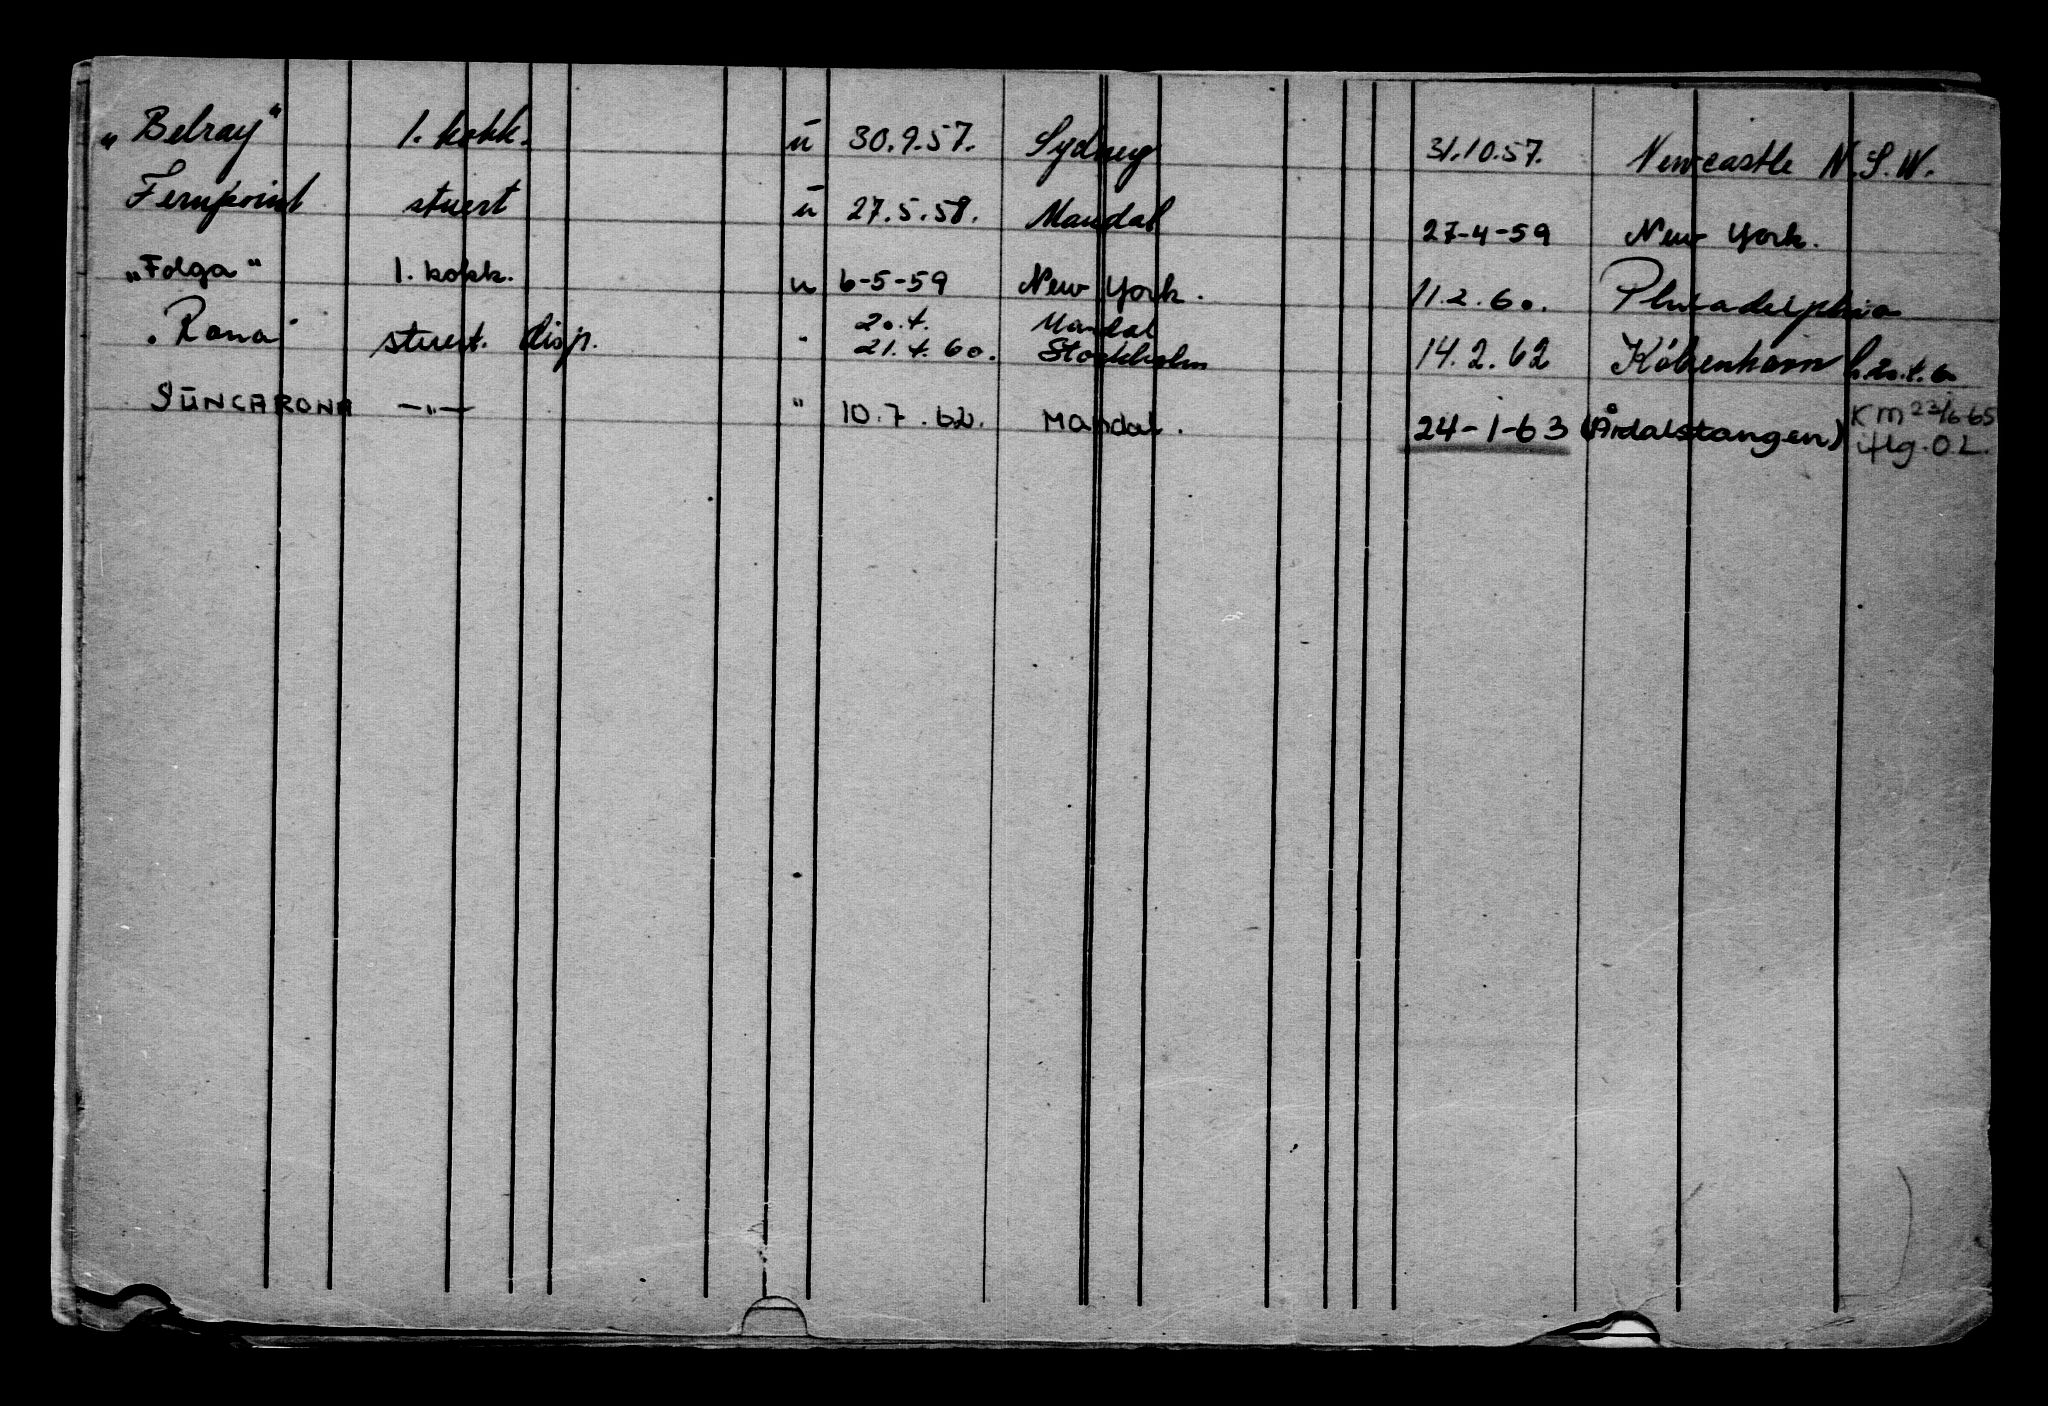 „Belray" 1. kokk. ū 30.9.57. Sydney 31.10.57. Newcastle N.S.W.
Fernpoint stuert ū 27.5.58. Mandal 27-4-59 New York.
„Folga" 1. kokk. u 6-5-59 New York. 11.2.60. Philadelphia
„Rona" stuert. disp. " 20.4. Mandal
21.4.60. Stockholm 14.2.62 København
SŪNCARONA —"— " 10.7.62. Mandal. 24-1-63 (Årdalstangen) KM 23/6-65
iflg. O.L.